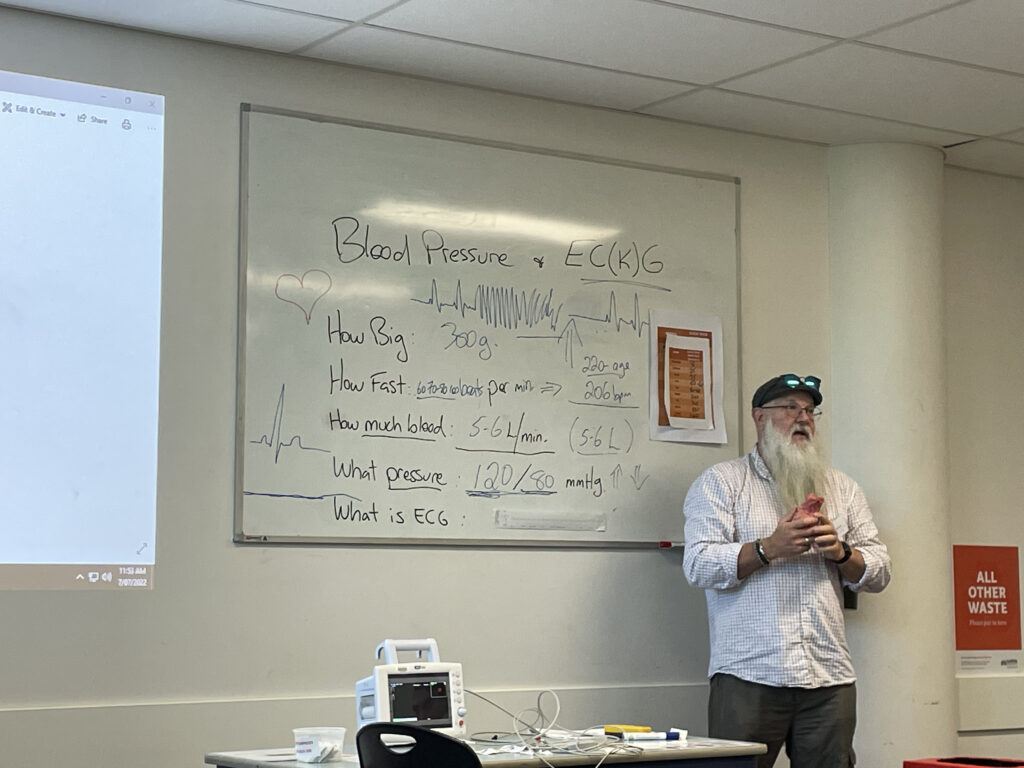 Edit & Create
Share
11:53 AM
7/07/2022
Blood Pressure & EC(K)G
How Big: 300g.
220-age
How Fast: 60-70-80 beats per min. => 206bpm
How much blood: 5-6L/min. (5-6L)
What pressure: 120/80 mmHg ↑ ↓
What is ECG:
ALL
OTHER
WASTE